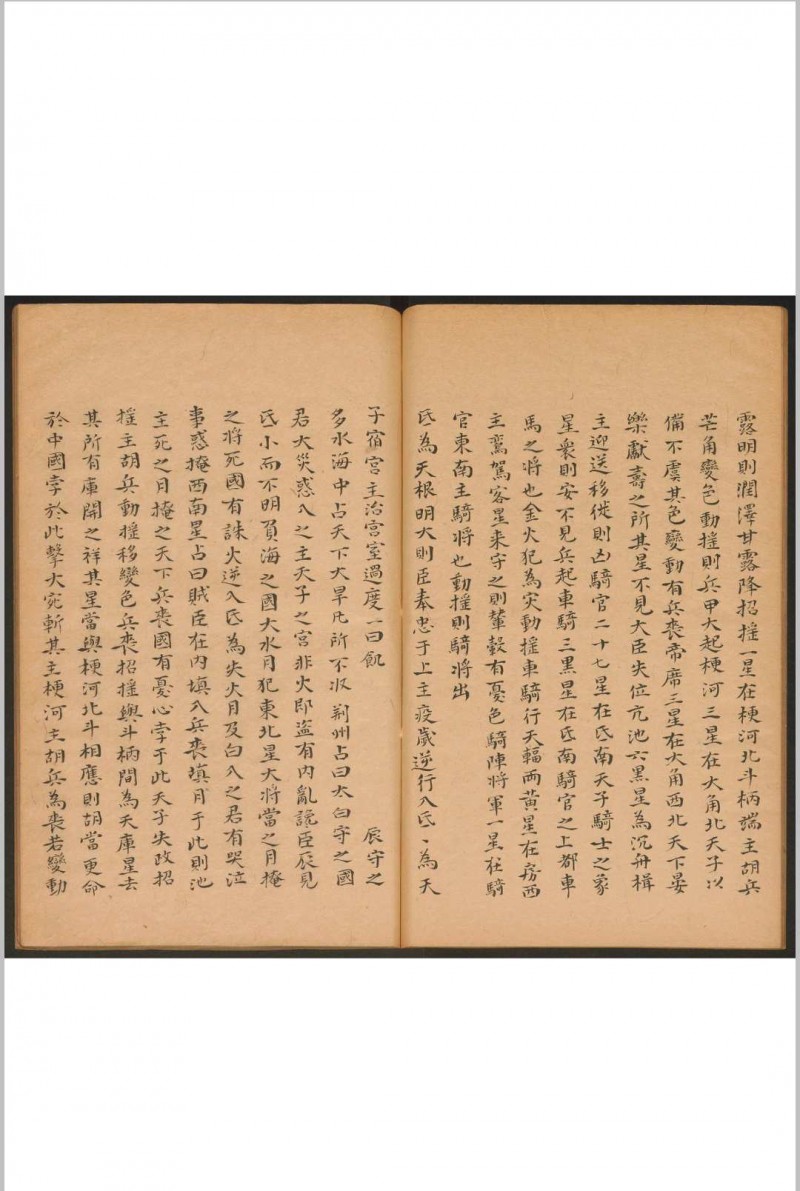 露明則潤澤甘露降招摇一星在梗河北斗柄端主胡兵
芒角變色動摇則兵甲大起梗河三星在大角北天子以
俻不虞其色變動有兵喪帝席三星在大角西北天下晏
樂獻壽之所其星不見大臣失位亢池六黑星為沉舟楫
主迎送移徙則凶騎官二十七星在氐南天子騎士之象
星衆則安不見兵起車騎三黑星在氐南騎官之上都車
馬之將也金火犯為灾動摇車騎行天輻兩黄星在房西
主鸞駕客星来守之則輦轂有憂色騎陣將軍一星在騎
官東南主騎將也動摇則騎將出
氐為天根明大則臣奉忠于上主疫歲逆行入氐丶為天
子宿宫主治宫室過度一曰飢 辰守之
多水海中占天下大旱凡所不収荆州占曰太白守之國
君大災惑入之主天子之宫非火即盗有内亂讒臣辰見
氐小而不明負海之國大水月犯東北星大將當之月掩
之將死國有誅火逆入氐為失火月及白入之君有哭泣
事惑掩西南星占曰賊臣在内填入兵喪填月于此則池
主死之月掩之天下兵喪國有憂心孛于此天子失政招
摇主胡兵動摇移變色兵喪招摇與斗柄間為天庫星去
其所有庫開之祥其星當與梗河北斗相應則胡當更命
於中國孛於此擊大宛斬其主梗河主胡兵為喪若變動